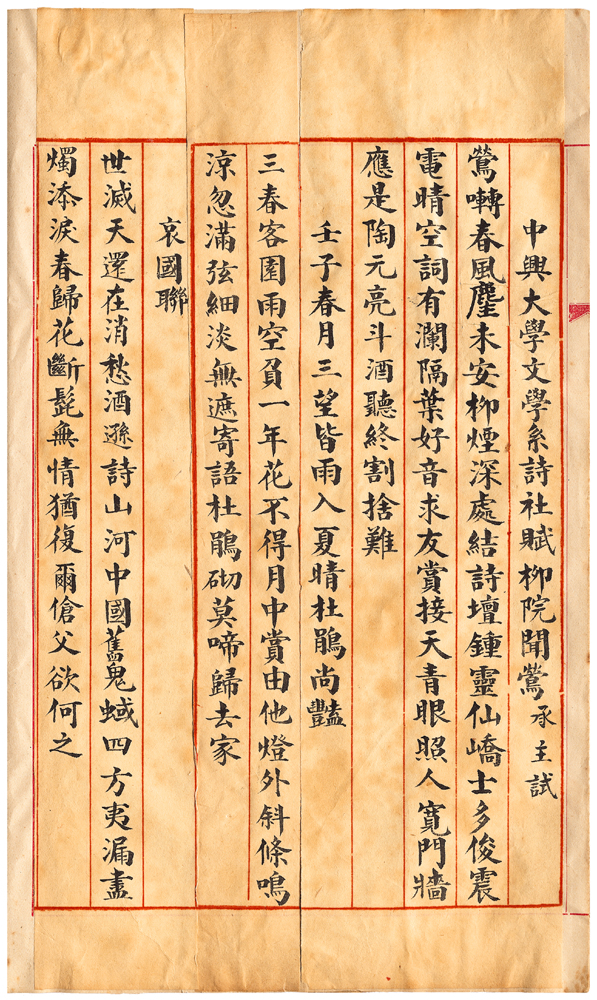 中興大學文學系詩社賦柳院聞鶯 承主試
鶯囀春風塵未安柳煙深處結詩壇鍾靈仙嶠士多俊震
電晴空詞有瀾隔葉好音求友賞接天青眼照人寬門牆
應是陶元亮斗酒聽終割捨難
壬子春月三望皆雨入夏晴杜鵑尚豔
三春客園雨空負一年花不得月中賞由他燈外斜條鳴
涼忽滿弦細淡無遮寄語杜鵑砌莫啼歸去家
哀國聯
世滅天還在消愁酒遜詩山河中國舊鬼蜮四方夷漏盡
燭添淚春歸花斷髭無情猶復爾傖父欲何之